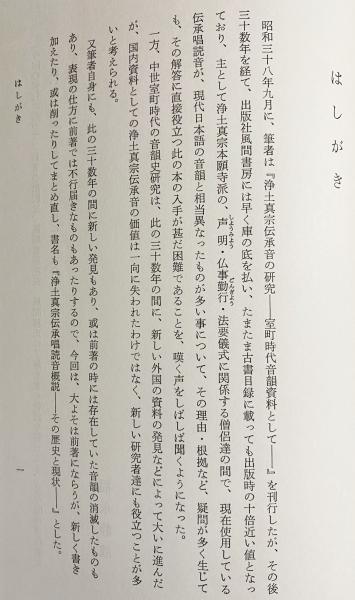 はしがき
昭和三十八年九月に、筆者は『浄土真宗伝承音の研究――室町時代音韻資料として――』を刊行したが、その後
三十数年を経て、出版社風間書房には早く庫の底を払い、たまたま古書目録に載っても出版時の十倍近い値となっ
ており、主として浄土真宗本願寺派の、声明・仏事勤行・法要儀式に関係する僧侶達の間で、現在使用している
伝承唱読音が、現代日本語の音韻と相当異なったものが多い事について、その理由・根拠など、疑問が多く生じて
も、その解答に直接役立つ此の本の入手が甚だ困難であることを、嘆く声をしばしば聞くようになった。
一方、中世室町時代の音韻史研究は、此の三十数年の間に、新しい外国の資料の発見などによって大いに進んだ
が、国内資料としての浄土真宗伝承音の価値は一向に失われたわけではなく、新しい研究者達にも役立つことが多
いと考えられる。
又筆者自身にも、此の三十数年の間に新しい発見もあり、或は前著の時には存在していた音韻の消滅したものも
あり、表現の仕方に前著では不行届きなものもあったりするので、今回は、大よそは前著にならうが、新しく書き
加えたり、或は削ったりしてまとめ直し、書名も『浄土真宗伝承唱読音概説――その歴史と現状――』とした。
はしがき
一